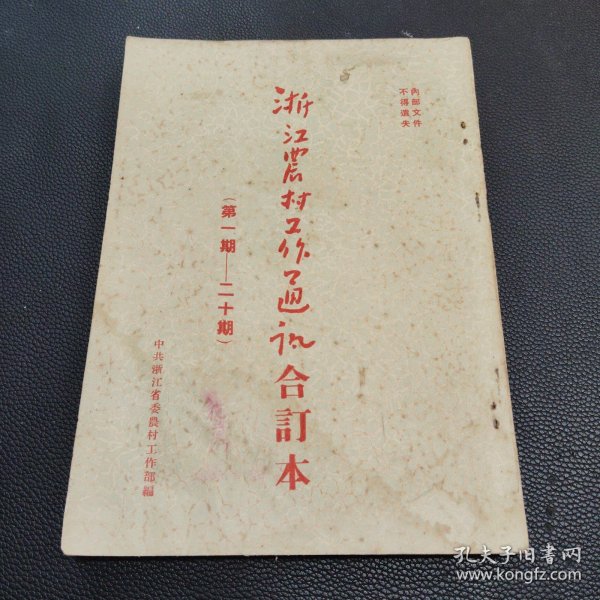 內部文件
不得遺失
浙江農村工作通訊合訂本
（第一期——二十期）
中共浙江省委農村工作部編
孔夫子旧书网
www.kongfz.com